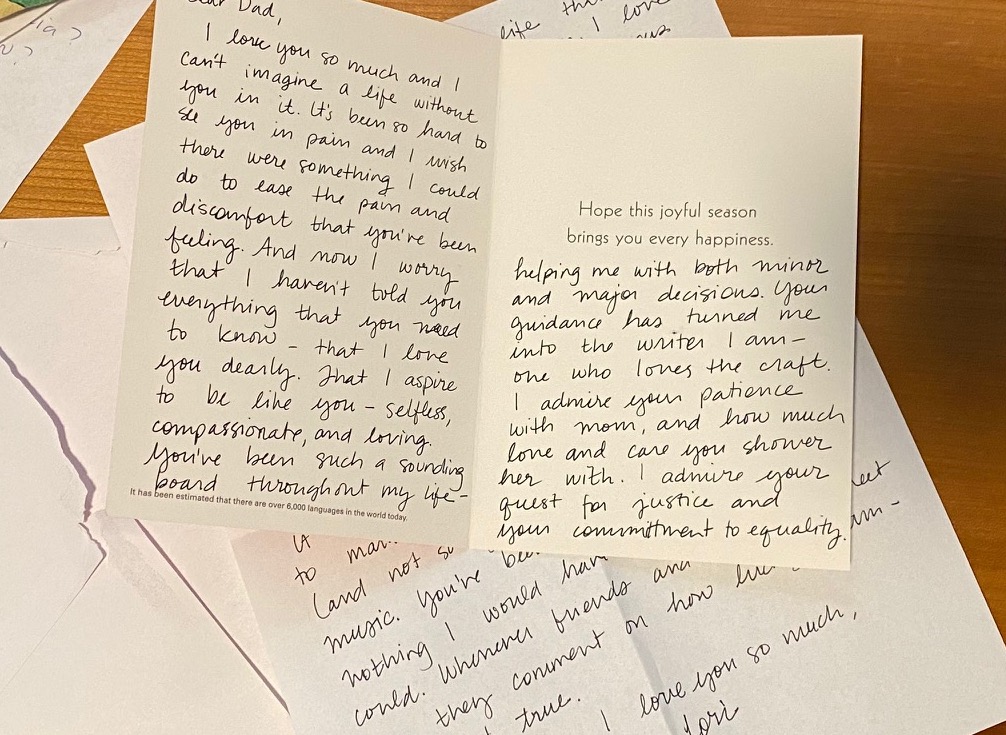 Dad,
I love you so much and I
can't imagine a life without
you in it. It's been so hard to
see you in pain and I wish
there were something I could
do to ease the pain and
discomfort that you've been
feeling. And now I worry
that I haven't told you
everything that you need
to know - that I love
you dearly. That I aspire
to be like you - selfless,
compassionate, and loving.
You've been such a sounding
board throughout my life -
It has been estimated that there are over 6,000 languages in the world today.
Hope this joyful season
brings you every happiness.
helping me with both minor
and major decisions. Your
guidance has turned me
into the writer I am -
one who loves the craft.
I admire your patience
with mom, and how much
love and care you shower
her with. I admire your
quest for justice and
your committment to equality.
life
I love
to
(and not
music. You've
nothing I would
could. Whenever friends and
they comment on how
true.
I love you so much,
Lori